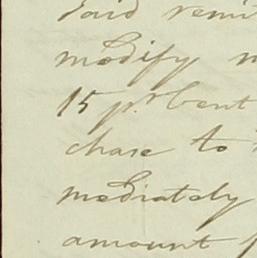 Said remi
modify
15 pr Cent
chase to
mediately
amount